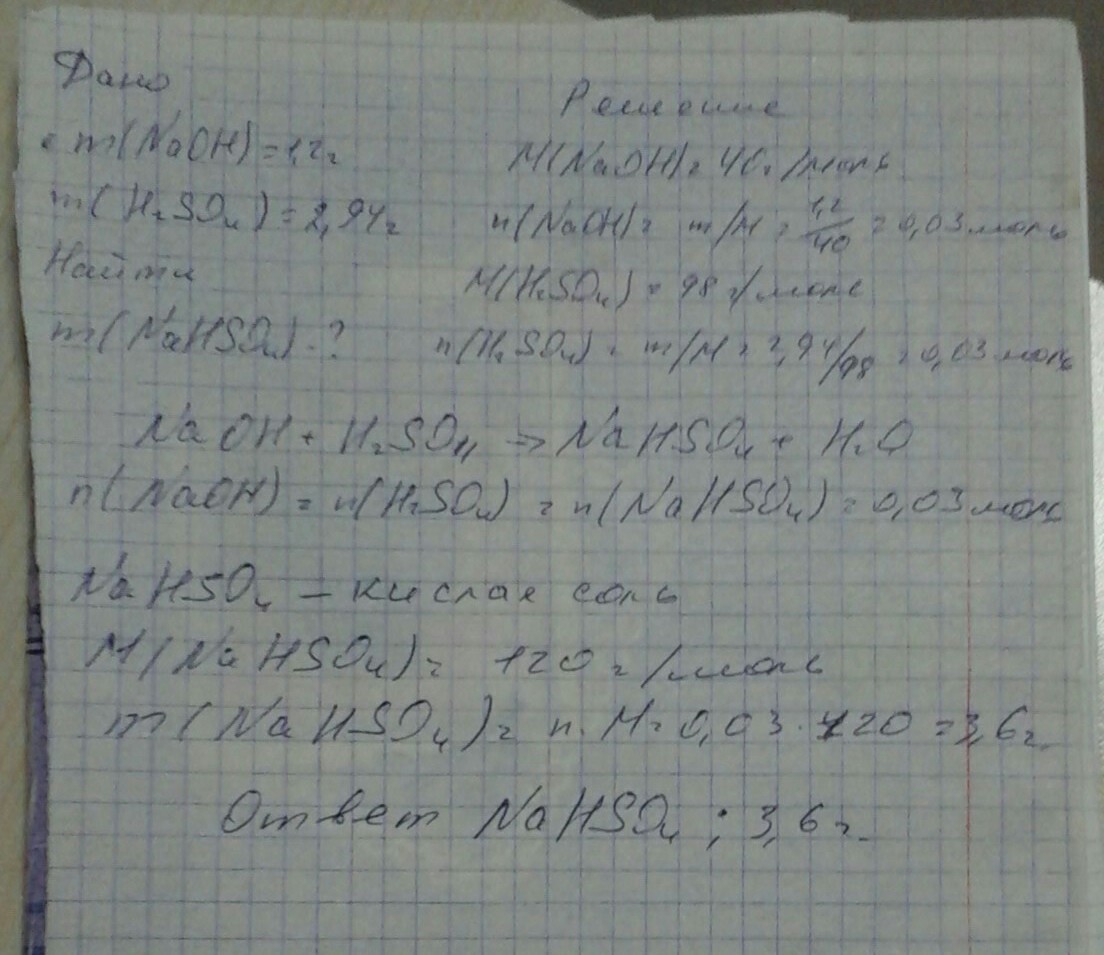 Дано
Решение
m(NaOH) = 1,2 г
M(NaOH) = 40 г/моль
m(H₂SO₄) = 2,94 г
n(NaOH) = m/M = 1,2/40 = 0,03 моль
Найти
M(H₂SO₄) = 98 г/моль
m(NaHSO₄) - ?
n(H₂SO₄) = m/M = 2,94/98 = 0,03 моль
NaOH + H₂SO₄ => NaHSO₄ + H₂O
n(NaOH) = n(H₂SO₄) = n(NaHSO₄) = 0,03 моль
NaHSO₄ – кислая соль
M(NaHSO₄) = 120 г/моль
m(NaHSO₄) = n·M = 0,03·120 = 3,6 г
Ответ NaHSO₄; 3,6 г.